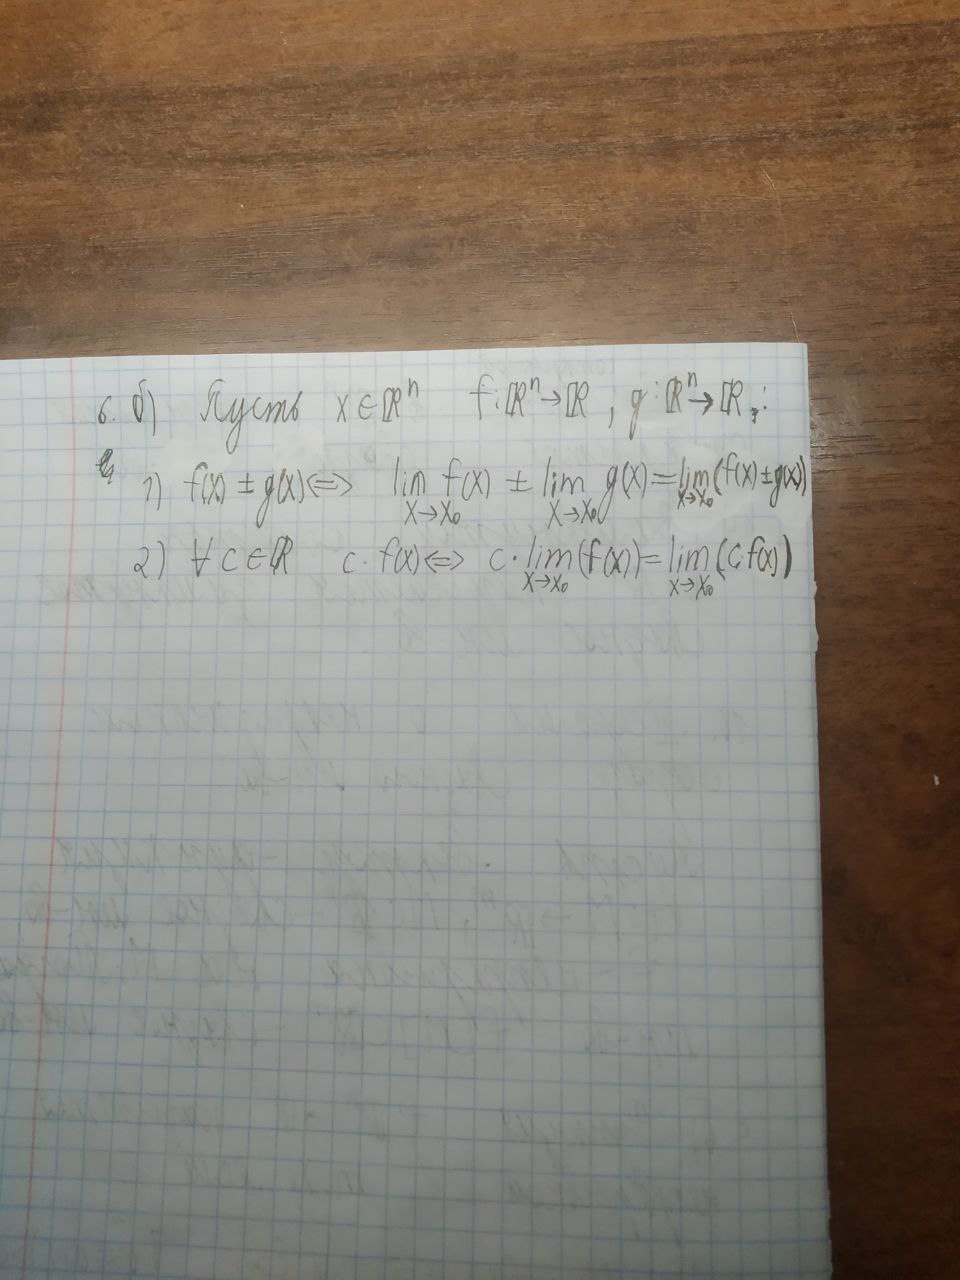 6. б) Пусть x ∈ ℝⁿ f: ℝⁿ → ℝ, g: ℝⁿ → ℝ, :
1) f(x) ± g(x) <=> lim x→x₀ f(x) ± lim x→x₀ g(x) = lim x→x₀ (f(x) ± g(x))
2) ∀ c ∈ ℝ c · f(x) <=> c · lim x→x₀ (f(x)) = lim x→x₀ (c f(x))